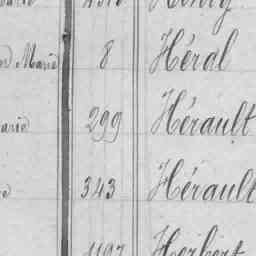 Marie 8 Héral
299 Hérault
343 Hérault
1197 Herbert